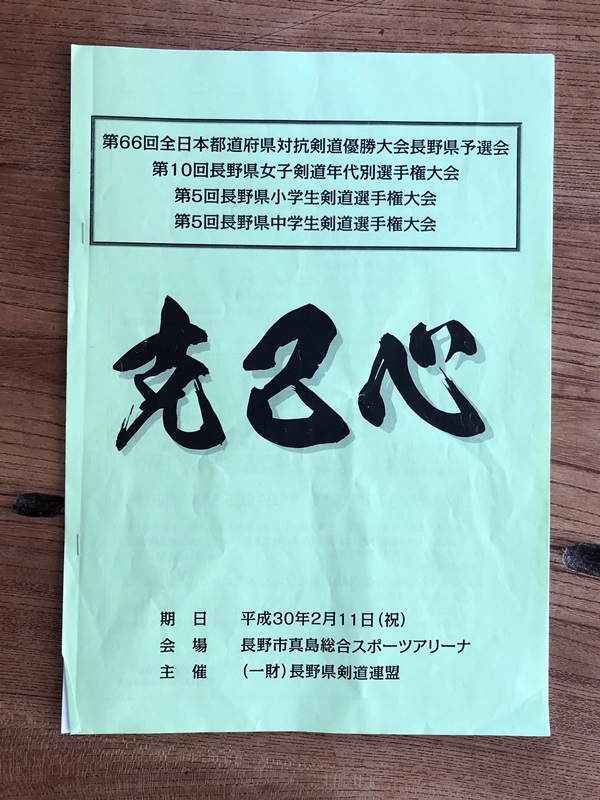 第66回全日本都道府県対抗剣道優勝大会長野県予選会
第10回長野県女子剣道年代別選手権大会
第5回長野県小学生剣道選手権大会
第5回長野県中学生剣道選手権大会
克己心
期 日 平成30年2月11日(祝)
会 場 長野市真島総合スポーツアリーナ
主 催 (一財)長野県剣道連盟